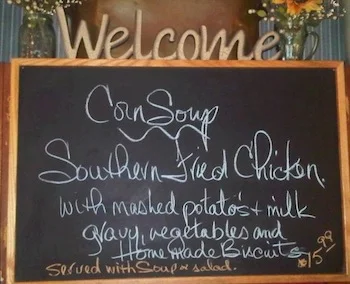 Welcome
Corn Soup
Southern Fried Chicken.
with mashed potato's + milk
gravy, vegetables and
Home Made Biscuits
served with Soup or salad. $15.99